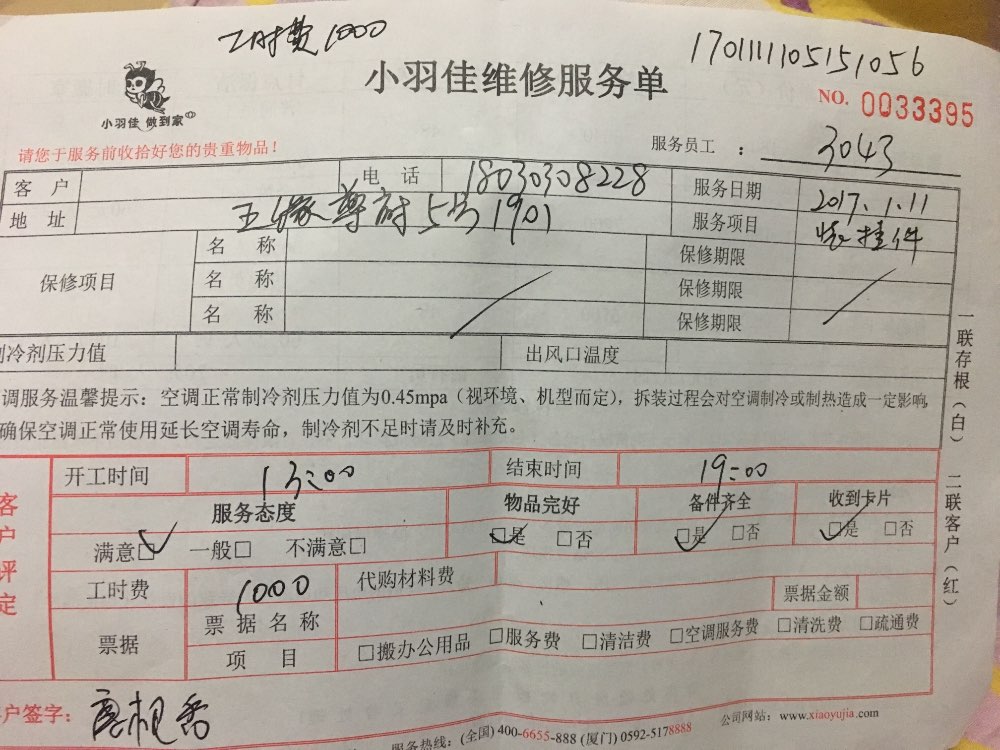 工时费1000
170111105151056
小羽佳维修服务单
NO. 0033395
小羽佳 做到家
请您于服务前收拾好您的贵重物品!
服务员工 : 3043
客 户 电 话 18030308228 服务日期 2017.1.11
地 址 五缘尊府5号1901 服务项目 装挂件
保修项目 名 称 保修期限
名 称 保修期限
名 称 保修期限
制冷剂压力值 出风口温度
调服务温馨提示:空调正常制冷剂压力值为0.45mpa(视环境、机型而定),拆装过程会对空调制冷或制热造成一定影响,
确保空调正常使用延长空调寿命,制冷剂不足时请及时补充。
客户评定
开工时间 13:00 结束时间 19:00
服务态度 物品完好 备件齐全 收到卡片
满意□ 一般□ 不满意□ □是 □否 □是 □否 □是 □否
工时费 1000 代购材料费 票据金额
票据 票据名称
项 目 □搬办公用品 □服务费 □清洁费 □空调服务费 □清洗费 □疏通费
户签字:
服务热线:(全国) 400-6655-888 (厦门) 0592-5178888
公司网站:www.xiaoyujia.com
一联存根(白) 二联客户(红)